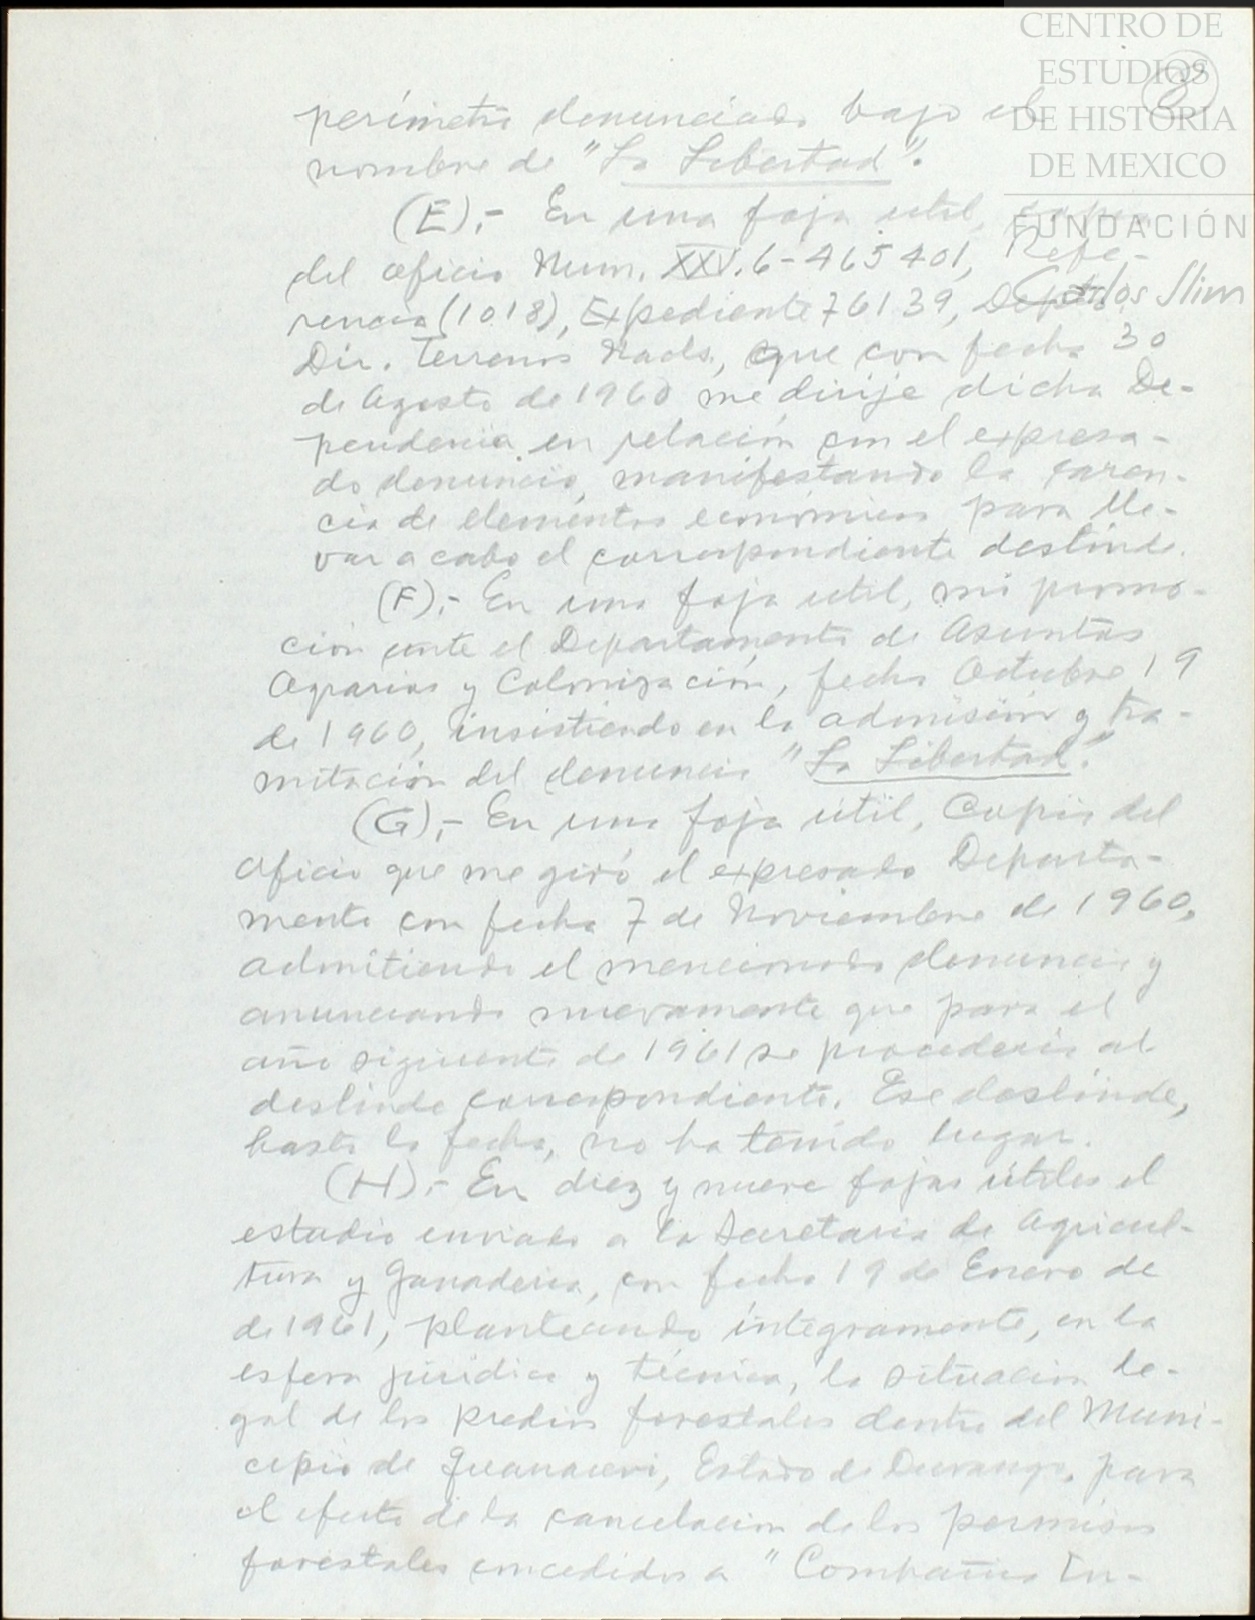 CENTRO DE
ESTUDIOS
DE HISTORIA
DE MEXICO
FUNDACIÓN
Carlos Slim
8
perímetro denunciado bajo el
nombre de "La Libertad".
(E).- En una foja util, copia
del oficio Num. XXV.6-465401, Refe-
rencia (1018), Expediente 76139, Depto.
Dir. Terrenos Nacls, que con fecha 30
de Agosto de 1960 me dirije dicha De-
pendencia en relación con el expresa-
do denuncio, manifestando la caren-
cia de elementos económicos para lle-
var a cabo el correspondiente deslinde.
(F).- En una foja util, mi promo-
ción ante el Departamento de Asuntos
Agrarios y Colonización, fecha Octubre 19
de 1960, insistiendo en la admisión y tra-
mitación del denuncio "La Libertad".
(G).- En una foja útil, Copia del
oficio que me giró el expresado Departa-
mento con fecha 7 de Noviembre de 1960,
admitiendo el mencionado denuncio y
anunciando nuevamente que para el
año siguiente de 1961 se procedería al
deslinde correspondiente. Ese deslinde,
hasta la fecha, no ha tenido lugar.
(H).- En diez y nueve fojas útiles el
estudio enviado a la Secretaria de Agricul-
tura y Ganaderia, con fecha 19 de Enero de
de 1961, planteando íntegramente, en la
esfera jurídica y técnica, la situación le-
gal de los predios forestales dentro del Muni-
cipio de Guanacevi, Estado de Durango, para
el efecto de la cancelación de los permisos
forestales concedidos a "Compañia In-